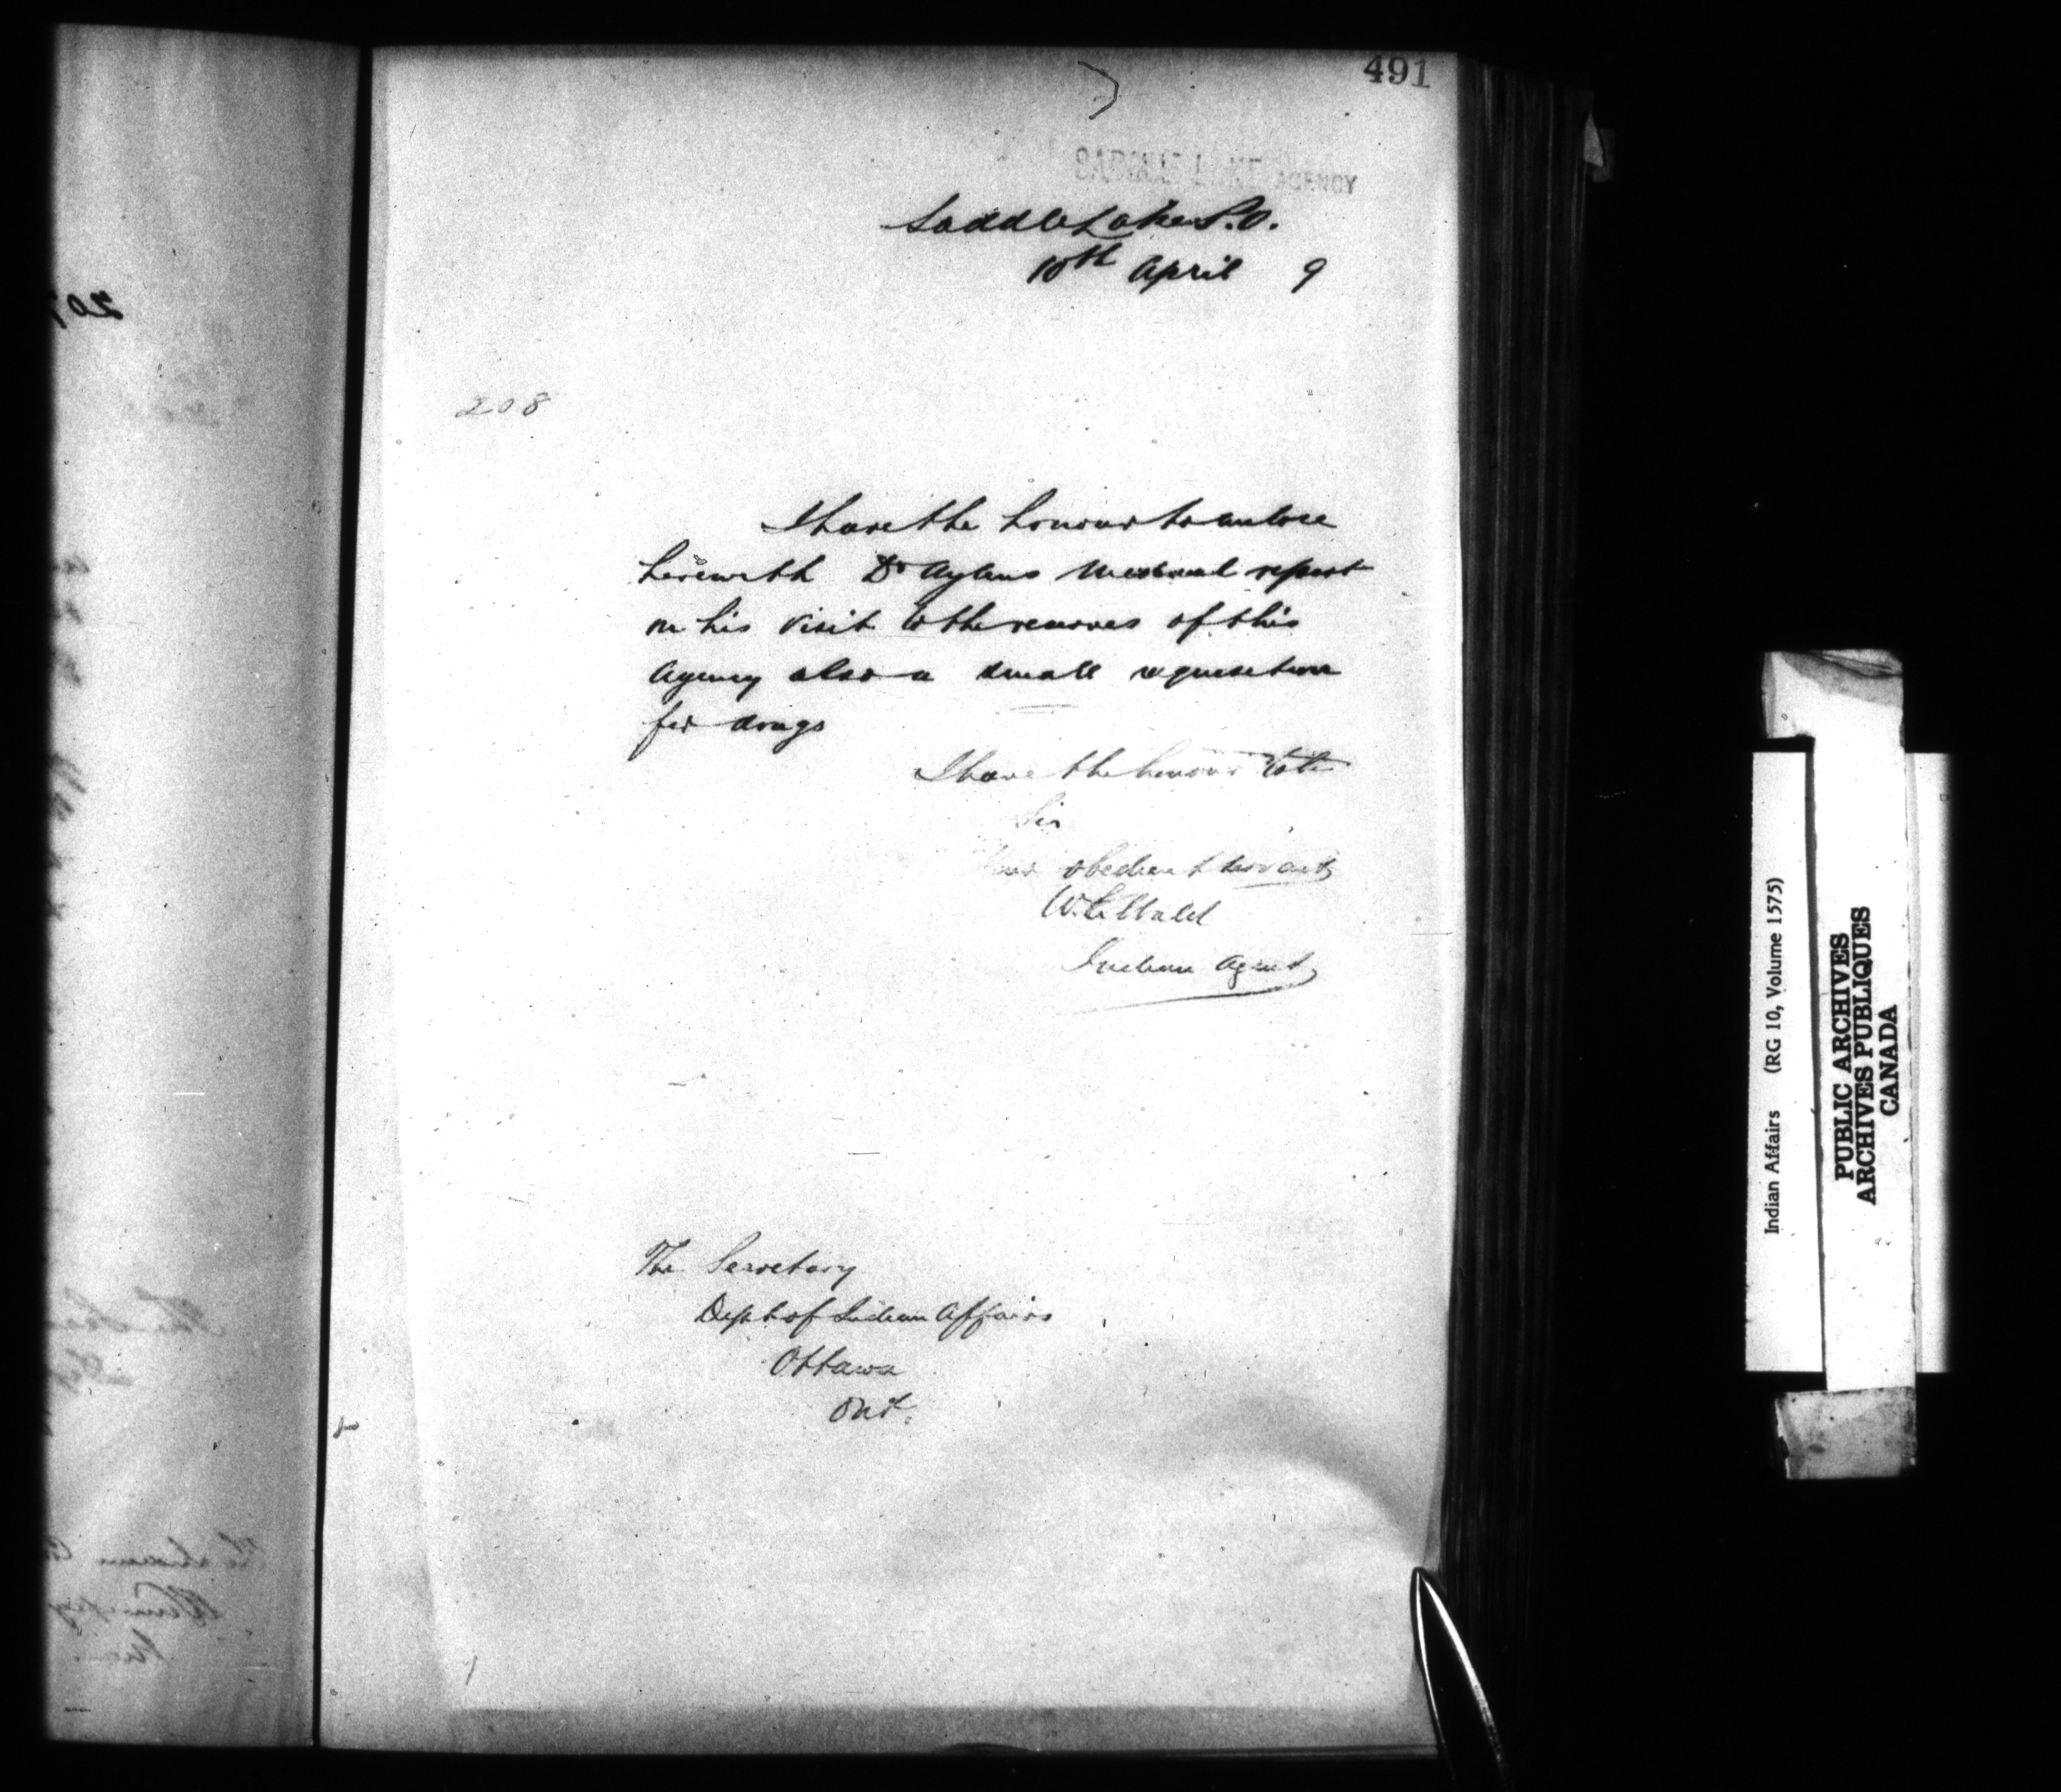 491
SADDLE LAKE AGENCY
Saddle Lake P.O.
10th April 9
208
I have the honour to enclose
herewith Dr Aylens Medical report
on his visit to the reserves of this
Agency also a small requisition
for drugs
I have the honour to be
Sir
Your obedient servant
W. Sibbald
Indian Agent
The Secretary
Dept of Indian Affairs
Ottawa
Ont.
Indian Affairs (RG 10, Volume 1575)
PUBLIC ARCHIVES
ARCHIVES PUBLIQUES
CANADA